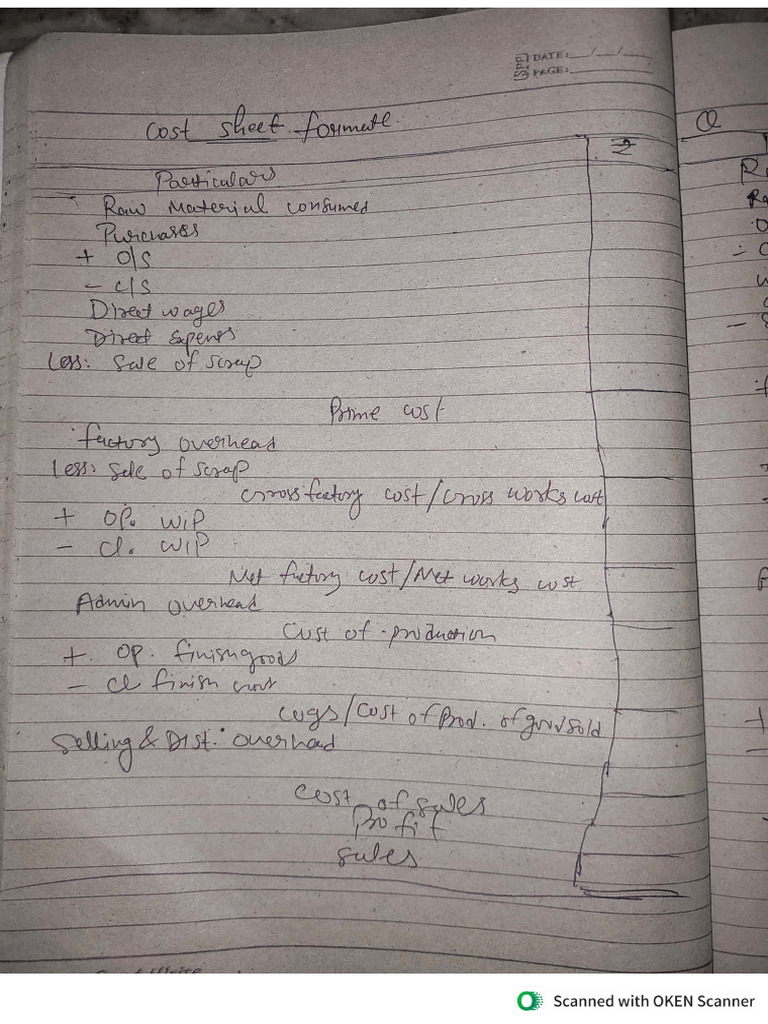 DATE: __/__/__
PAGE:
Cost sheet formate
₹
Particulars
Raw Material consumed
Purchases
+ O/S
- C/S
Direct wages
Direct Expens
Less: Sale of scrap
Prime cost
factory overhead
Less: Sale of scrap
Gross factory cost/Gross works cost
+ OP. WIP
- Cl. WIP
Net factory cost/Net works cost
Admin overhead
Cost of production
+. OP. finish goods
- Cl finish
COGS/Cost of Prod. of good sold
Selling & Dist. overhead
Cost of sales
Profit
Sales
Scanned with OKEN Scanner